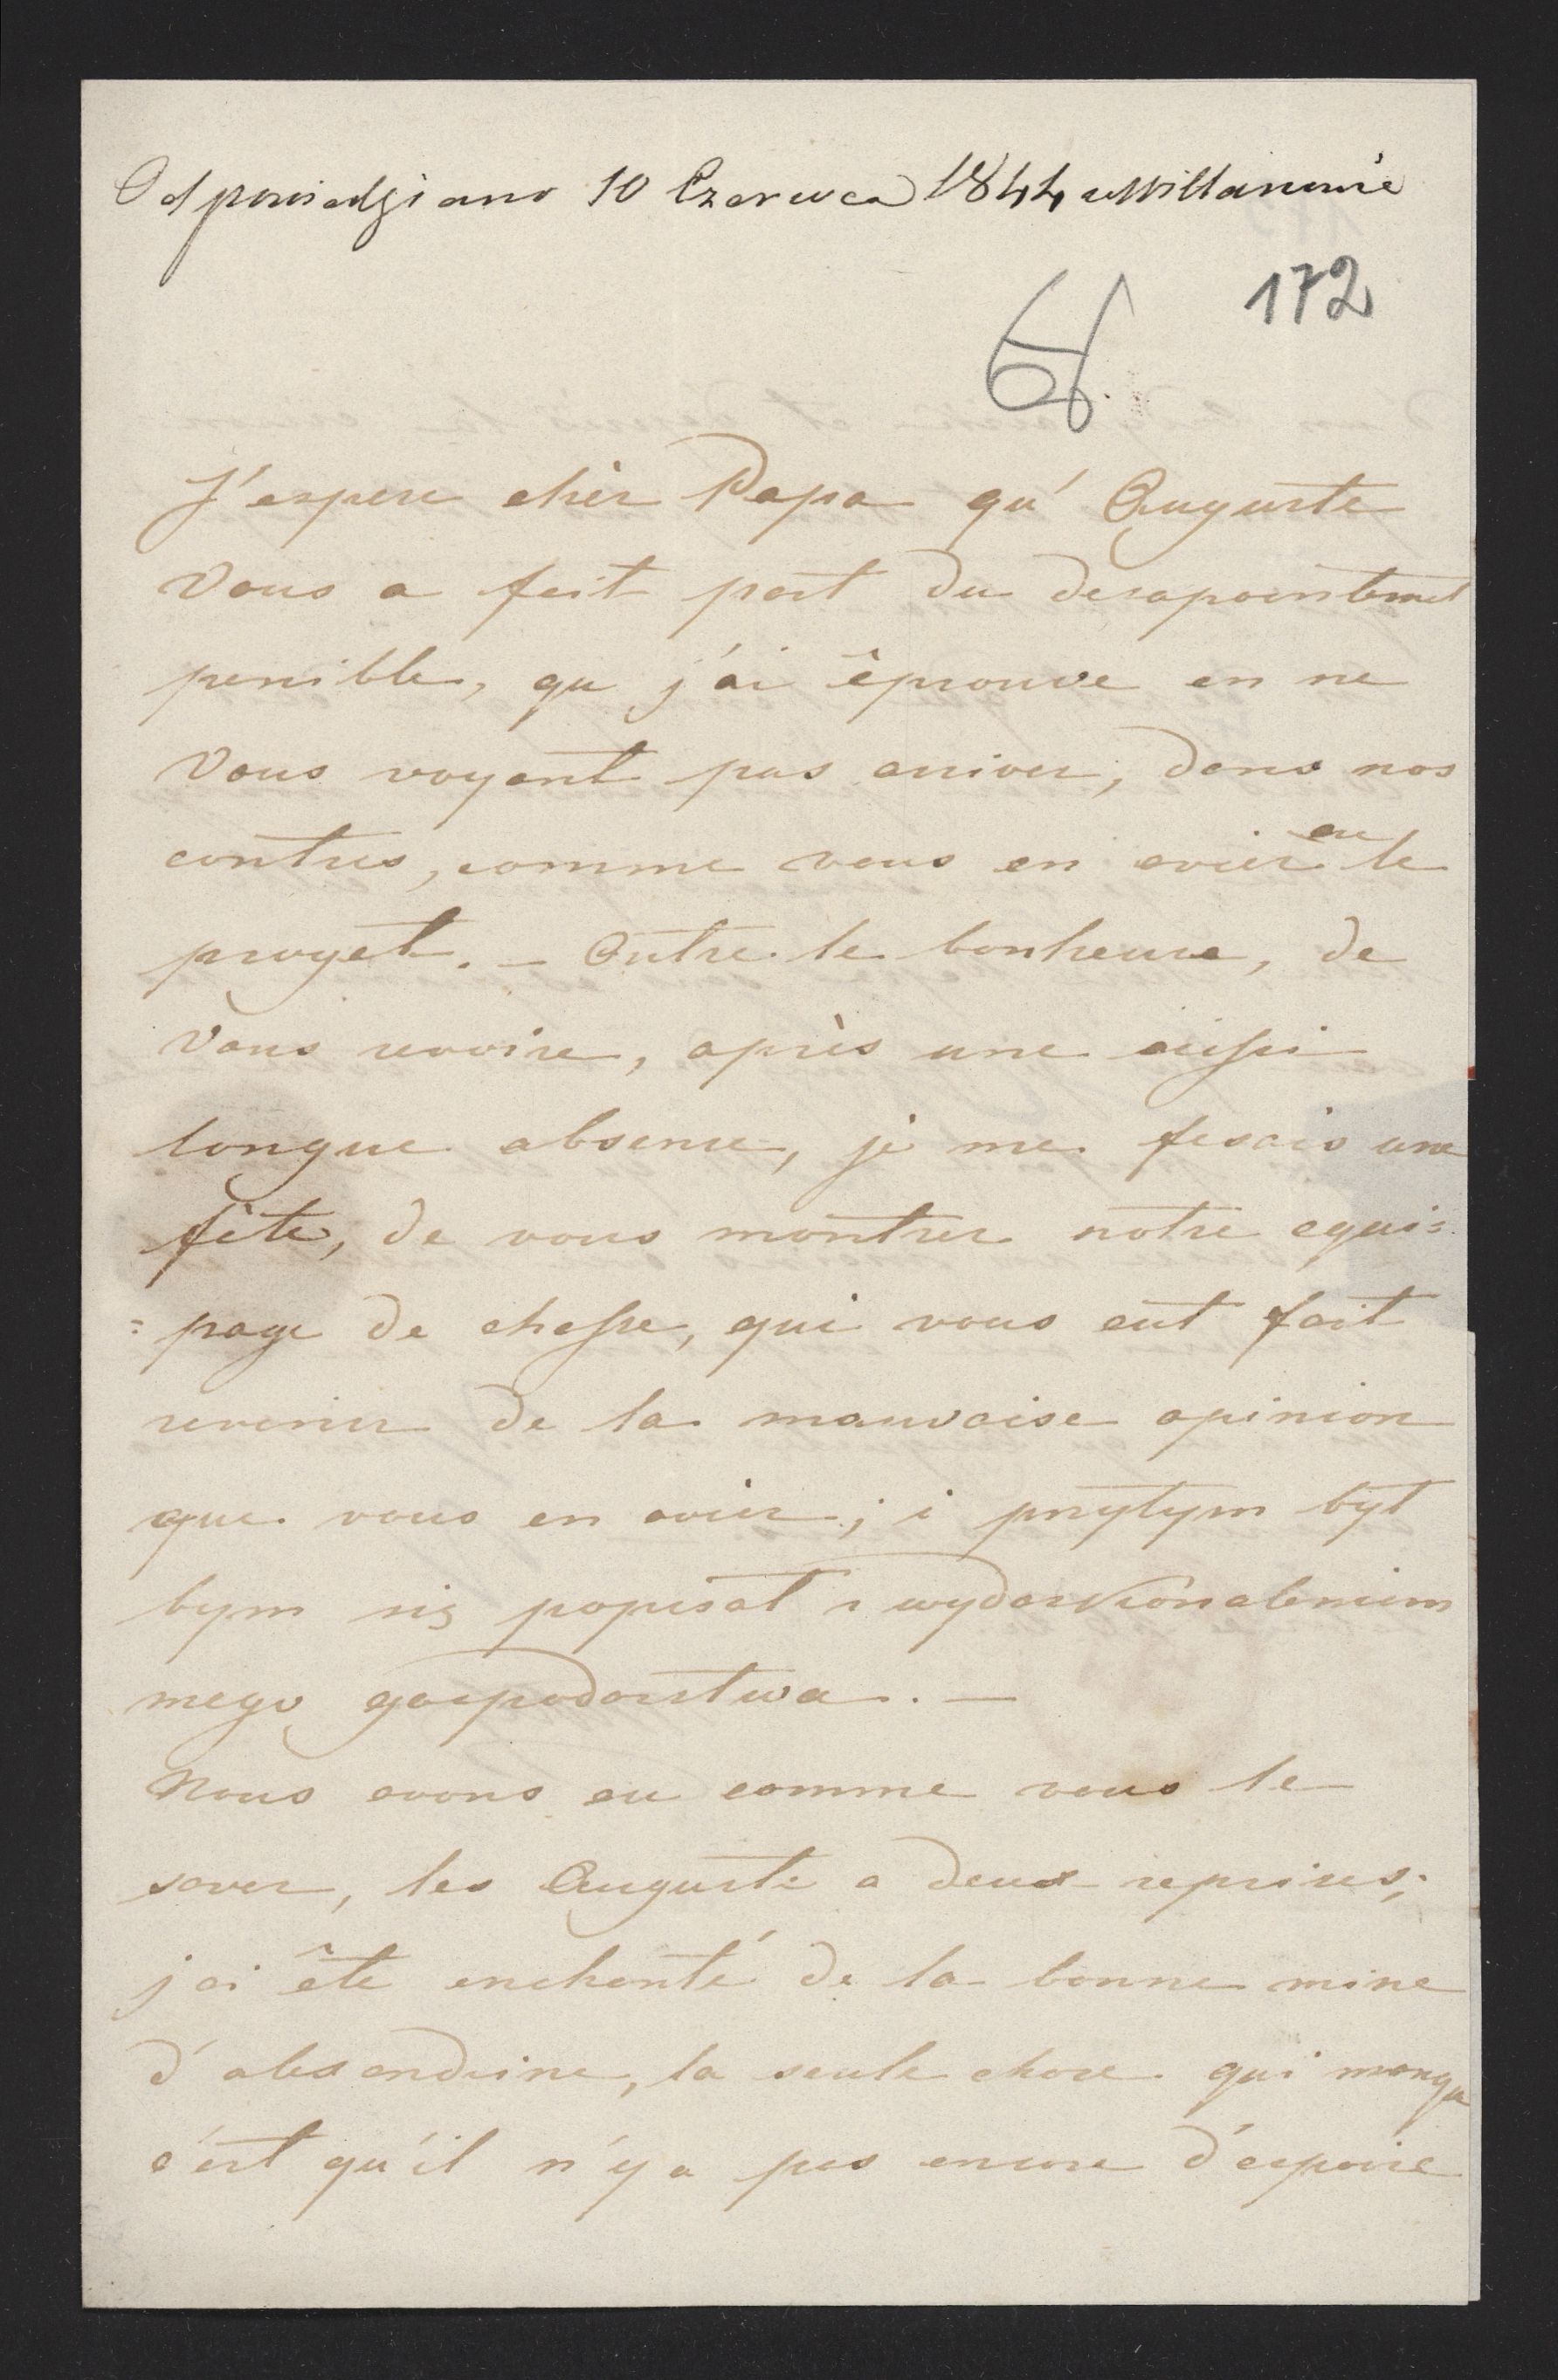 Odpowiedziano 10 Czerwca 1844 w Willanowie
172
J'espere chèr Papa qu' Auguste
Vous a fait part du desapointemet
penible, qu j'ai êprouve en ne
Vous voyant pas arriver, dans nos
contres, comme vous en aviez eu le
proyet. – Outre le bonheure, de
Vous revoire, après une aussi
longue absence, je me fesais une
fête, de vous montrer notre equi=
=page de chasse, qui vous eut fait
revenir de la mauvaise opinion
que vous en aviez; i przytym był
bym się popisał z wydoskonaleniem
mego gospodarstwa. –
Nous avons eu comme vous le
savez, les Auguste a deux reprises;
j'ai ête enchanté de la bonne mine
d'alexandrine, la seule chose qui manqu
c'est qu'il n'y a pas encore d'espoire